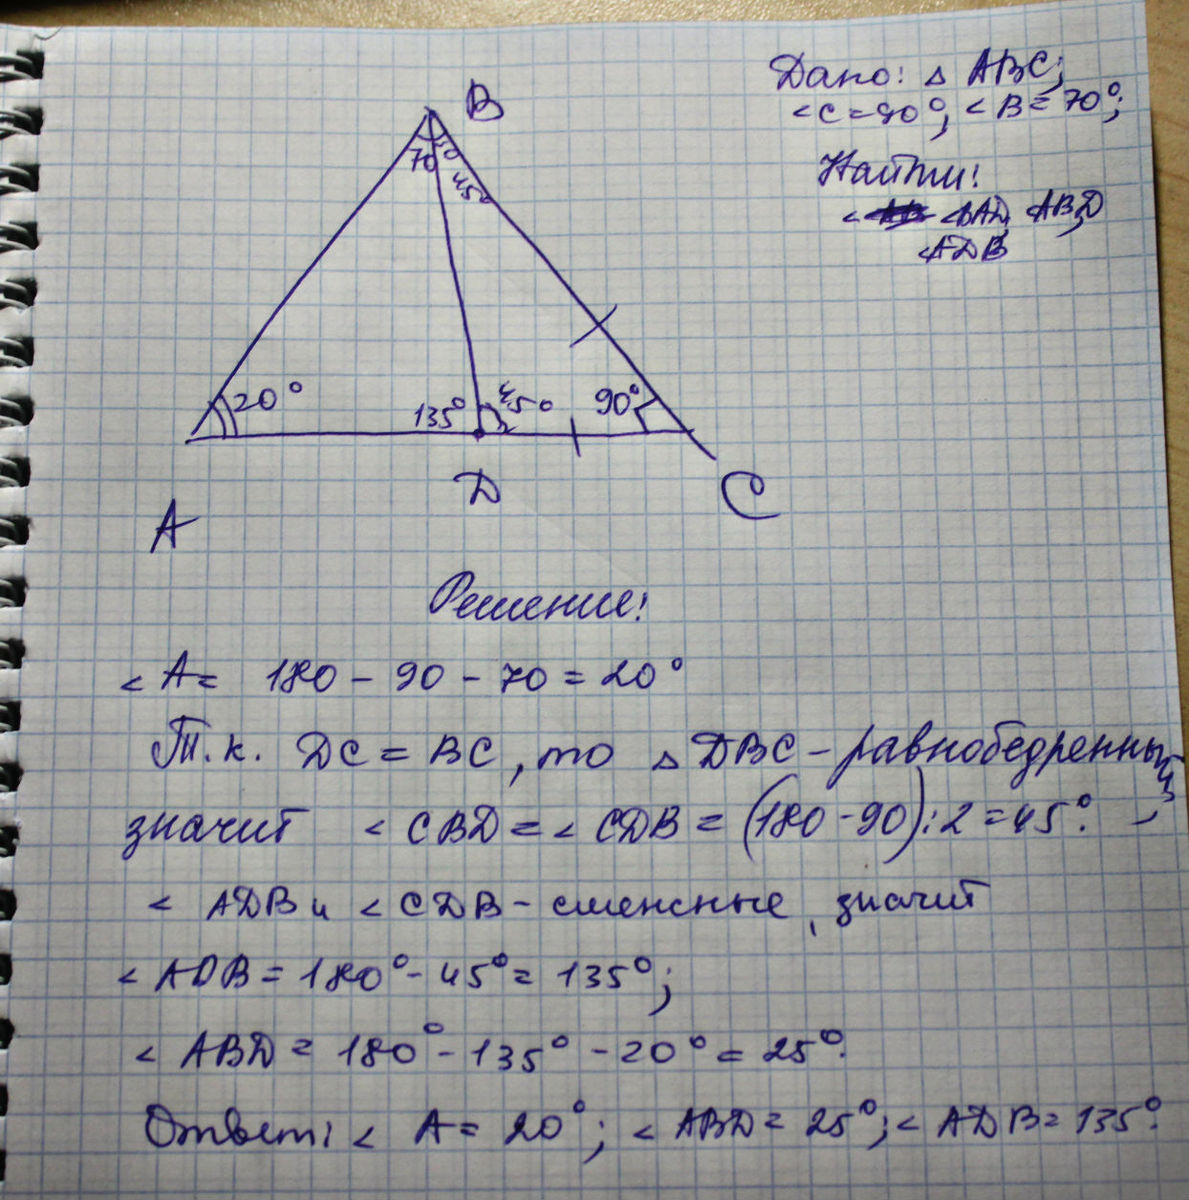 Дано: △ ABC;
<C=90°, <B=70°;
Найти:
< <BAD, <ABD
<ADB
B
70°
45°
20°
135°
45°
90°
D
A
C
Решение:
<A= 180-90-70=20°
Т.к. DC=BC, то △DBC-равнобедренный,
значит <CBD=<CDB=(180-90):2=45°.
<ADB и <CDB-смежные, значит
<ADB=180°-45°=135°;
<ABD=180°-135°-20°=25°.
Ответ: <A=20°; <ABD=25°; <ADB=135°.